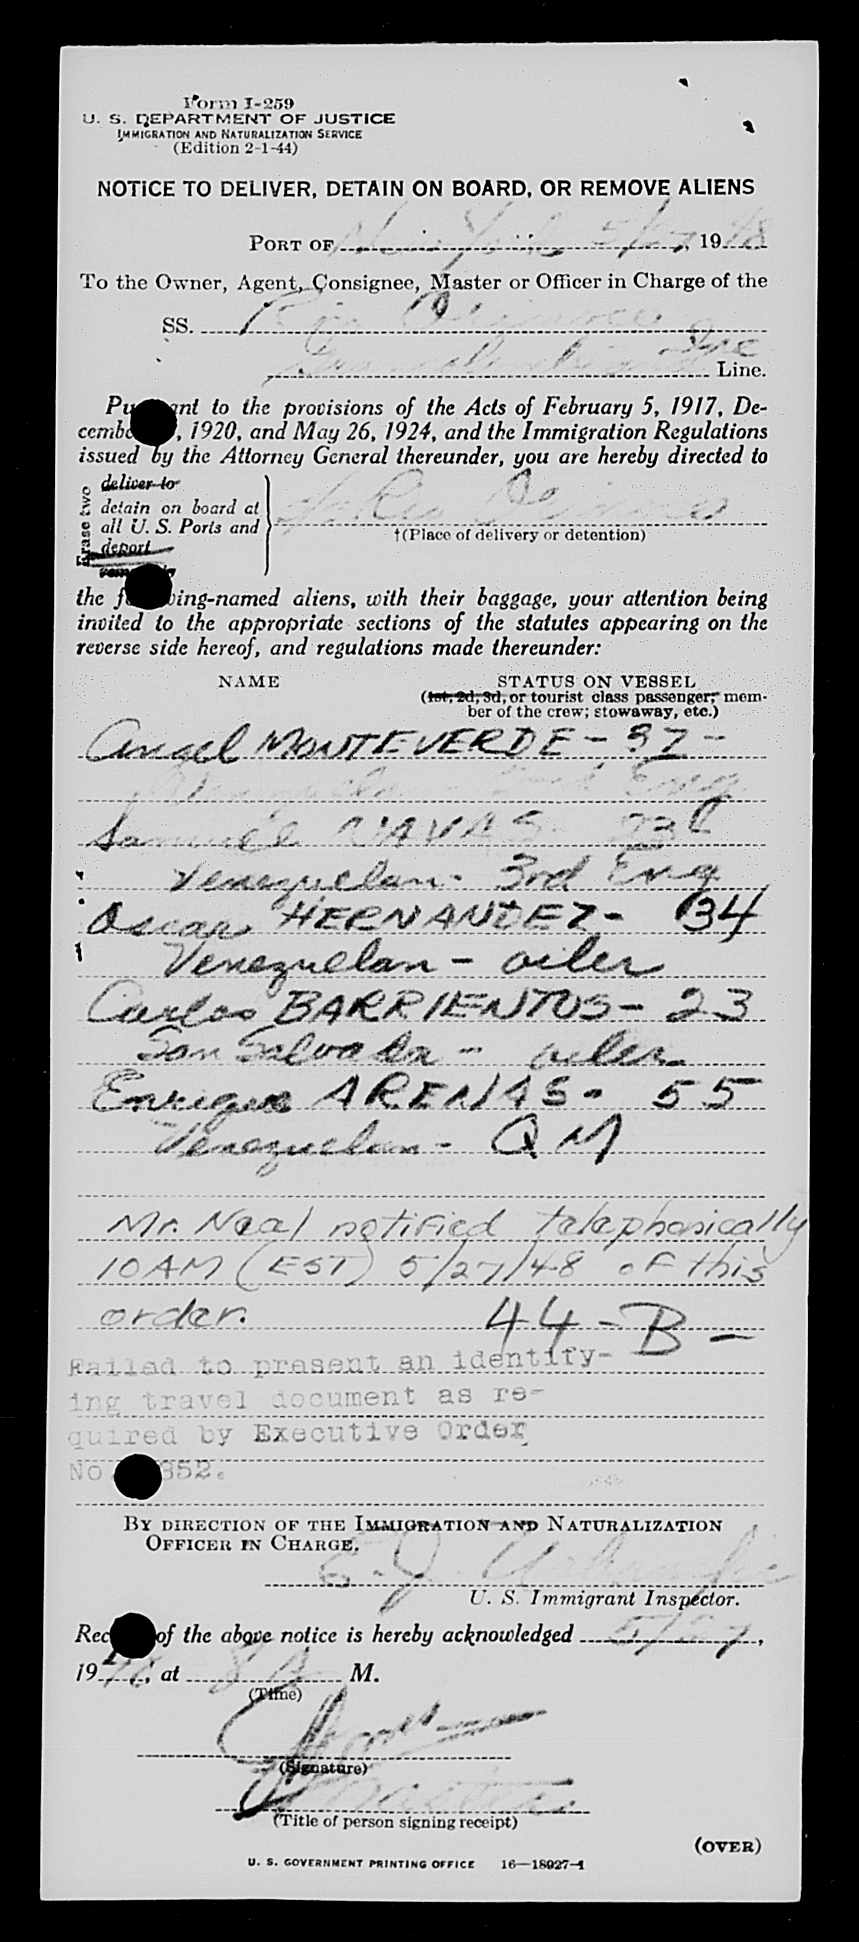 Form I-259
U. S. DEPARTMENT OF JUSTICE
IMMIGRATION AND NATURALIZATION SERVICE
(Edition 2-1-44)
NOTICE TO DELIVER, DETAIN ON BOARD, OR REMOVE ALIENS
PORT OF New York 5/27, 1948
To the Owner, Agent, Consignee, Master or Officer in Charge of the
SS. Rio
Inc Line.
Pu nt to the provisions of the Acts of February 5, 1917, De-
cembe , 1920, and May 26, 1924, and the Immigration Regulations
issued by the Attorney General thereunder, you are hereby directed to
Erase two
deliver to
detain on board at
all U. S. Ports and
deport
remove
†(Place of delivery or detention)
the f ing-named aliens, with their baggage, your attention being
invited to the appropriate sections of the statutes appearing on the
reverse side hereof, and regulations made thereunder:
NAME STATUS ON VESSEL
(1st, 2d, 3d, or tourist class passenger; mem-
ber of the crew; stowaway, etc.)
Angel MONTEVERDE - 37 -
Eng
Samuel NAVAS
Venezuelan - 3rd Eng
Oscar HERNANDEZ - 34
Venezuelan - oiler
Carlos BARRIENTOS - 23
San Salvador - oiler
Enrique ARENAS - 55
Venezuelan - QM
Mr. Neal notified telephonically
10 AM (EST) 5/27/48 of this
order. 44-B-
Failed to present an identify-
ing travel document as re-
quired by Executive Order
No 352.
BY DIRECTION OF THE IMMIGRATION AND NATURALIZATION
OFFICER IN CHARGE.
E. J.
U. S. Immigrant Inspector.
Rec of the above notice is hereby acknowledged 5/27,
1948, at M.
(Time)
(Signature)
Master
(Title of person signing receipt)
(OVER)
U. S. GOVERNMENT PRINTING OFFICE 16—18927-1